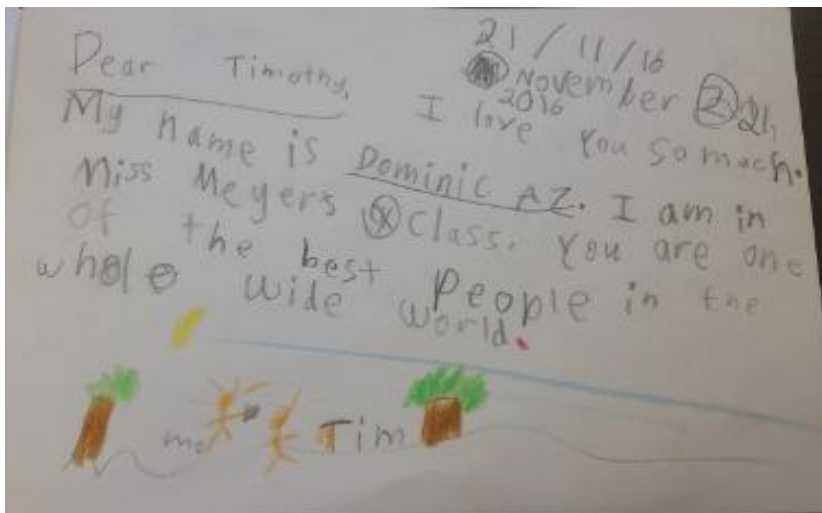 21/11/16
Dear Timothy,
November 21,
2016
I love you so mach.
My name is Dominic AZ. I am in
Miss Meyers Class. You are one
of the best People in the
whole wide world.
me Tim